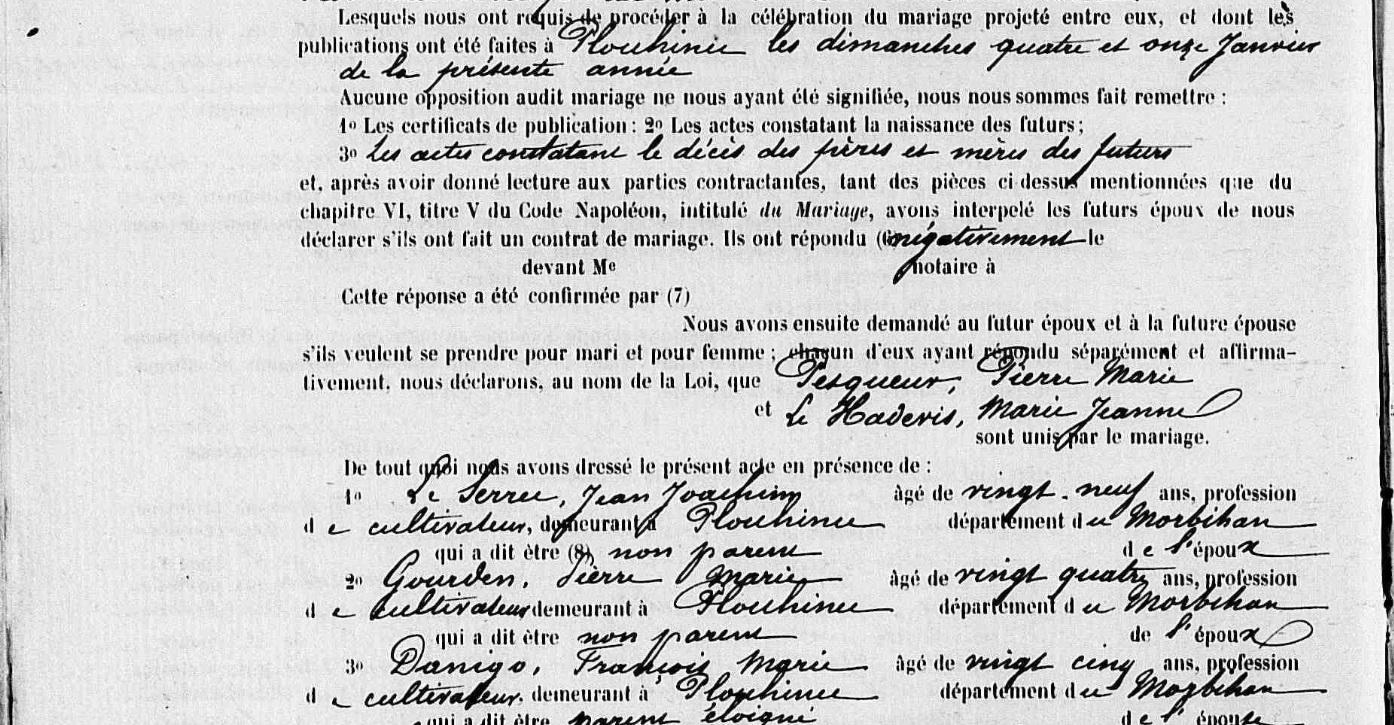 Lesquels nous ont requis de procéder à la célébration du mariage projeté entre eux, et dont les
publications ont été faites à Plouhinec les dimanches quatre et onze Janvier
de la présente année
Aucune opposition audit mariage ne nous ayant été signifiée, nous nous sommes fait remettre :
1º Les certificats de publication : 2º Les actes constatant la naissance des futurs;
3º Les actes constatant le décès des pères et mères des futurs
et, après avoir donné lecture aux parties contractantes, tant des pièces ci-dessus mentionnées que du
chapitre VI, titre V du Code Napoléon, intitulé du Mariage, avons interpelé les futurs époux de nous
déclarer s'ils ont fait un contrat de mariage. Ils ont répondu (6) négativement le
devant Me notaire à
Cette réponse a été confirmée par (7)
Nous avons ensuite demandé au futur époux et à la future épouse
s'ils veulent se prendre pour mari et pour femme ; chacun d'eux ayant répondu séparément et affirma-
tivement, nous déclarons, au nom de la Loi, que Pesqueur, Pierre Marie
et Le Hadevis, Marie Jeanne
sont unis par le mariage.
De tout quoi nous avons dressé le présent acte en présence de :
1º Le Serrec, Jean Joachim âgé de vingt-neuf ans, profession
de cultivateur, demeurant à Plouhinec département du Morbihan
qui a dit être (8) non parent de l'époux
2º Gourden, Pierre Marie âgé de vingt quatre ans, profession
de cultivateur demeurant à Plouhinec département du Morbihan
qui a dit être non parent de l'époux
3º Danigo, François Marie âgé de vingt cinq ans, profession
de cultivateur, demeurant à Plouhinec département du Morbihan
qui a dit être parent éloigné de l'épouse